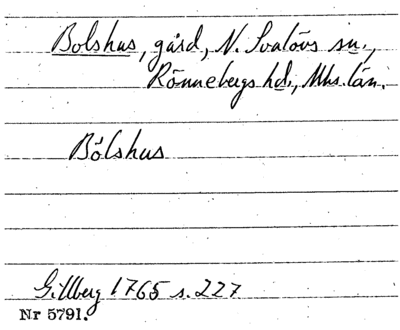 Bolshus, gård, N. Svalövs sn.,
Rönnebergs hd., Mhs. län.
Bölshus
Gillberg 1765 s. 227
Nr 5791.